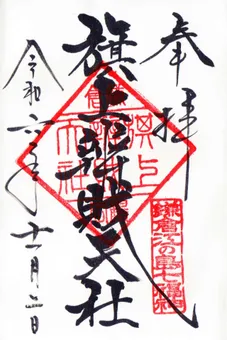 奉拝
旗上弁財天社
令和六年十一月二日
鎌倉江の島七福神